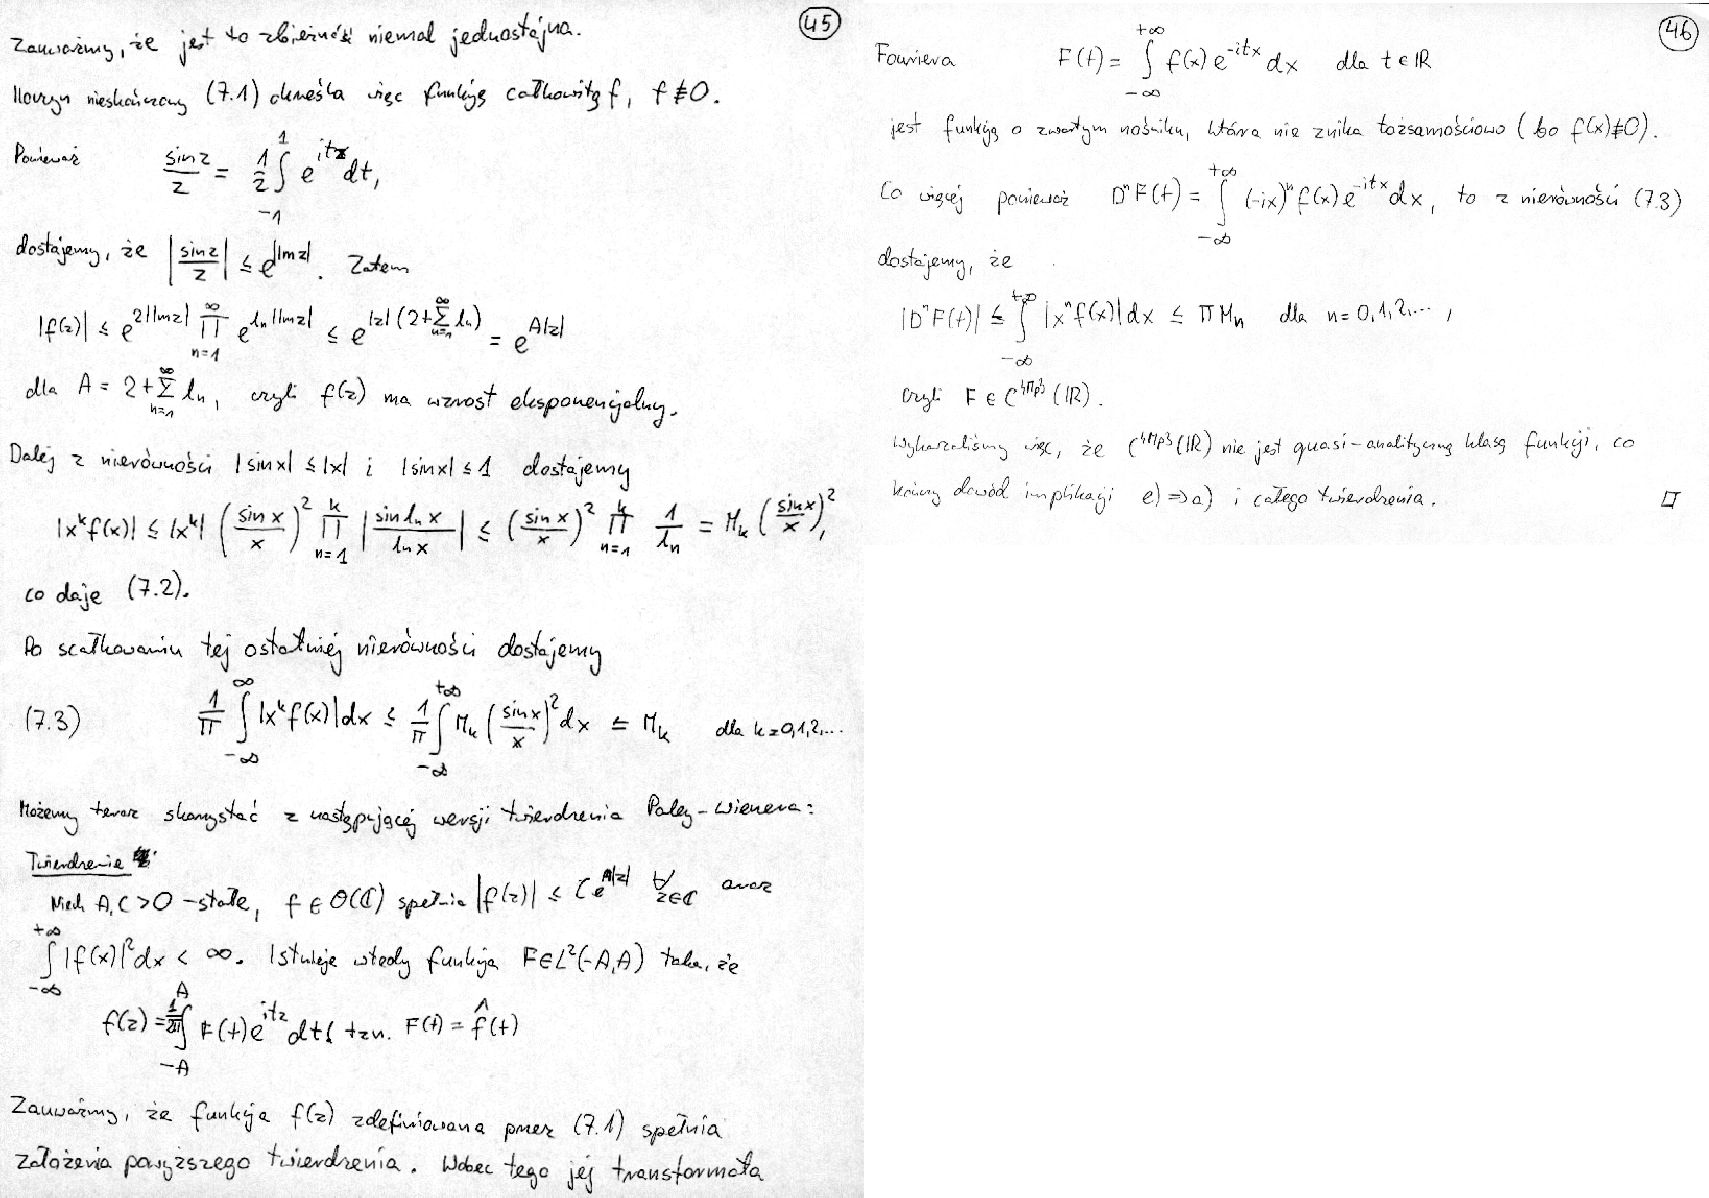 45
Zauważmy, że jest to zbieżność niemal jednostajna.
Iloczyn nieskończony (7.1) określa więc funkcję całkowitą f, f ≢ 0.
Ponieważ sin z / z = 1/2 ∫_{-1}^{1} e^{itz} dt,
dostajemy, że |sin z / z| ≤ e^{|Im z|}. Zatem
|f(z)| ≤ e^{2|Im z|} ∏_{n=1}^{∞} e^{l_n |Im z|} ≤ e^{|z|(2+∑_{n=1}^{∞} l_n)} = e^{A|z|}
dla A = 2+∑_{n=1}^{∞} l_n, czyli f(z) ma wzrost eksponencjalny.
Dalej z nierówności |sin x| ≤ |x| i |sin x| ≤ 1 dostajemy
|x^k f(x)| ≤ |x^k| (sin x / x)^2 ∏_{n=1}^{k} |sin l_n x / l_n x| ≤ (sin x / x)^2 ∏_{n=1}^{k} 1/l_n = M_k (sin x / x)^2,
co daje (7.2).
Po scałkowaniu tej ostatniej nierówności dostajemy
(7.3) 1/π ∫_{-∞}^{∞} |x^k f(x)| dx ≤ 1/π ∫_{-∞}^{+∞} M_k (sin x / x)^2 dx ≤ M_k dla k=0,1,2,...
Możemy teraz skorzystać z następującej wersji twierdzenia Paley-Wienera:
Twierdzenie
Niech A, C > 0 - stałe, f ∈ O(ℂ) spełnia |f(z)| ≤ C e^{A|z|} ∀_{z∈ℂ} oraz
∫_{-∞}^{+∞} |f(x)|^2 dx < ∞. Istnieje wtedy funkcja F ∈ L^2(-A,A) taka, że
f(z) = 1/2π ∫_{-A}^{A} F(t) e^{itz} dt, tzn. F(t) = f̂(t)
Zauważmy, że funkcja f(z) zdefiniowana przez (7.1) spełnia
założenia powyższego twierdzenia. Wobec tego jej transformata
46
Fouriera F(t) = ∫_{-∞}^{+∞} f(x) e^{-itx} dx dla t ∈ ℝ
jest funkcją o zwartym nośniku, która nie znika tożsamościowo (bo f(x) ≢ 0).
Co więcej ponieważ D^n F(t) = ∫_{-∞}^{+∞} (-ix)^n f(x) e^{-itx} dx, to z nierówności (7.3)
dostajemy, że
|D^n F(t)| ≤ ∫_{-∞}^{+∞} |x^n f(x)| dx ≤ π M_n dla n=0,1,2,...,
czyli F ∈ C^{{M_p}}(ℝ).
Wykazaliśmy więc, że C^{{M_p}}(ℝ) nie jest quasi-analityczną klasą funkcji, co
kończy dowód implikacji e) ⇒ a) i całego twierdzenia. □